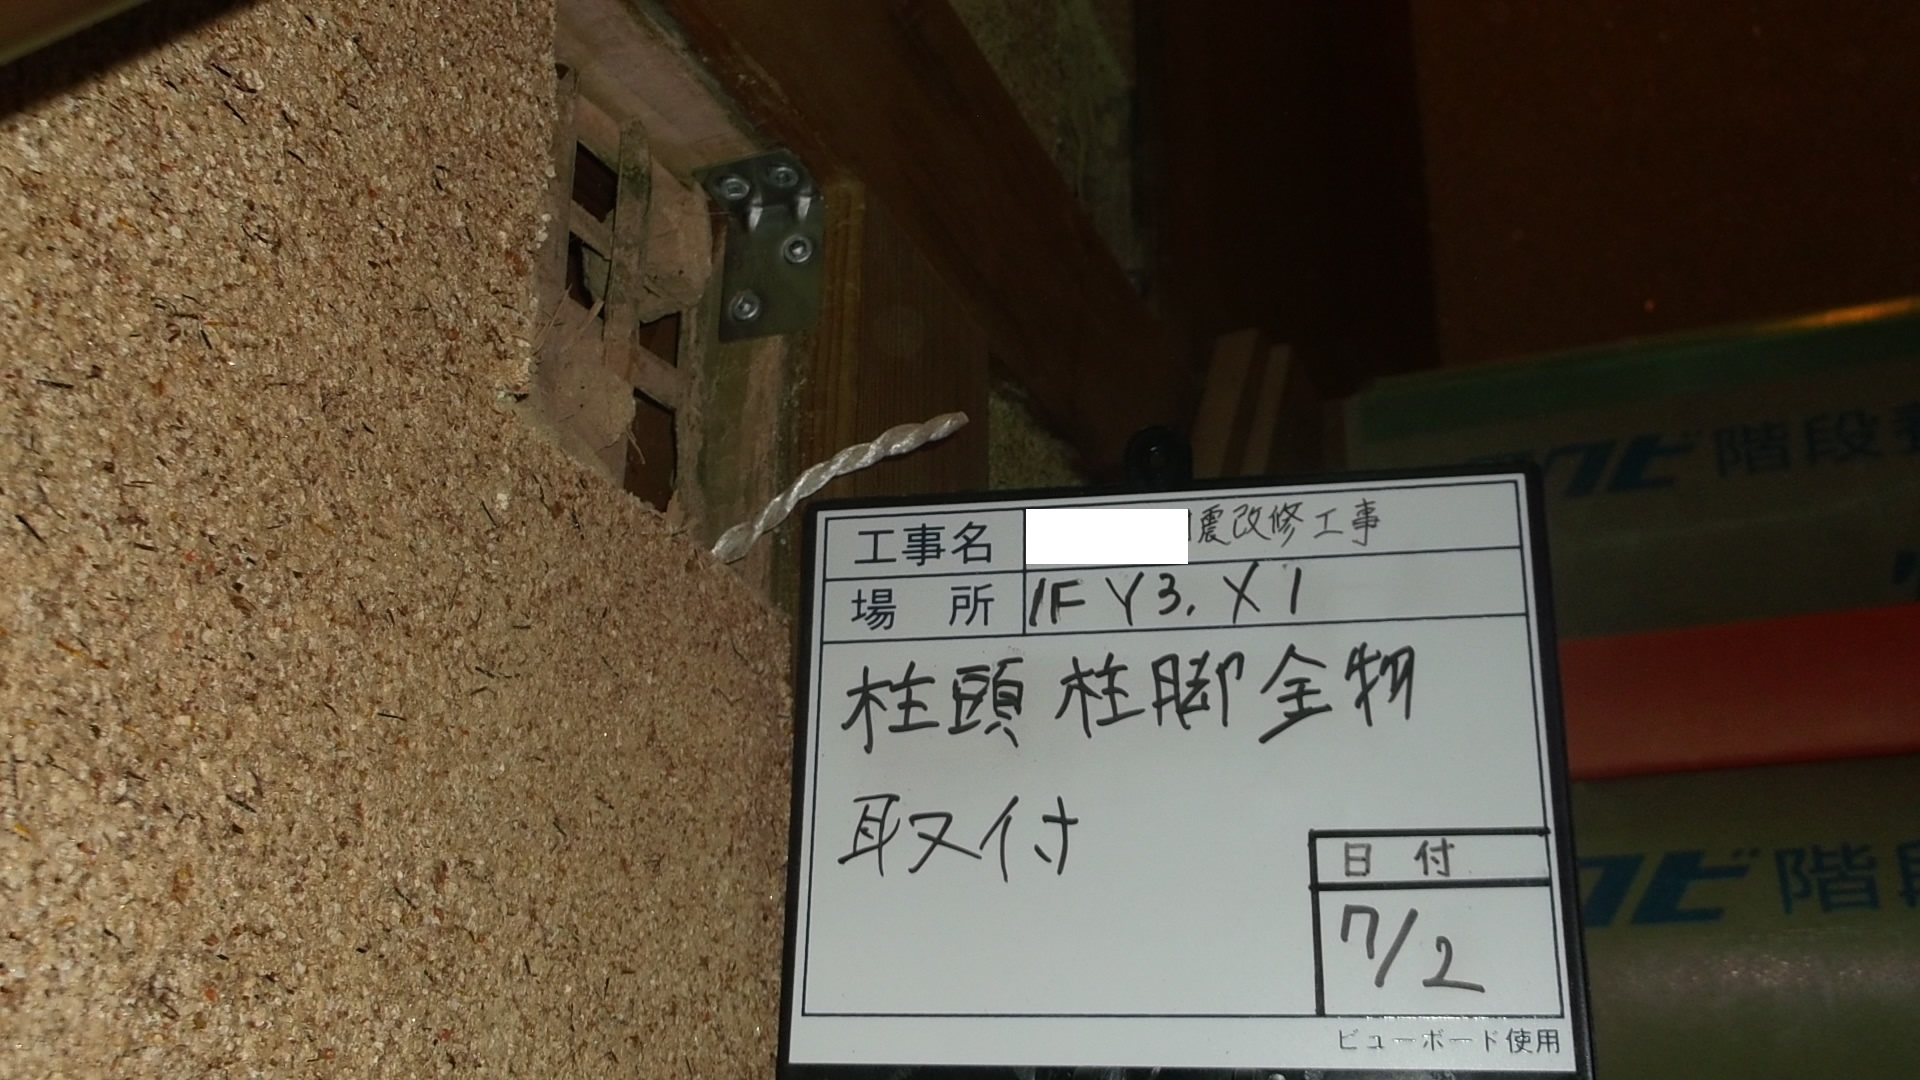 工事名 震改修工事
場 所 1F Y3. X1
柱頭 柱脚金物
取付
日 付
7/2
ビューボード使用
階段
階段